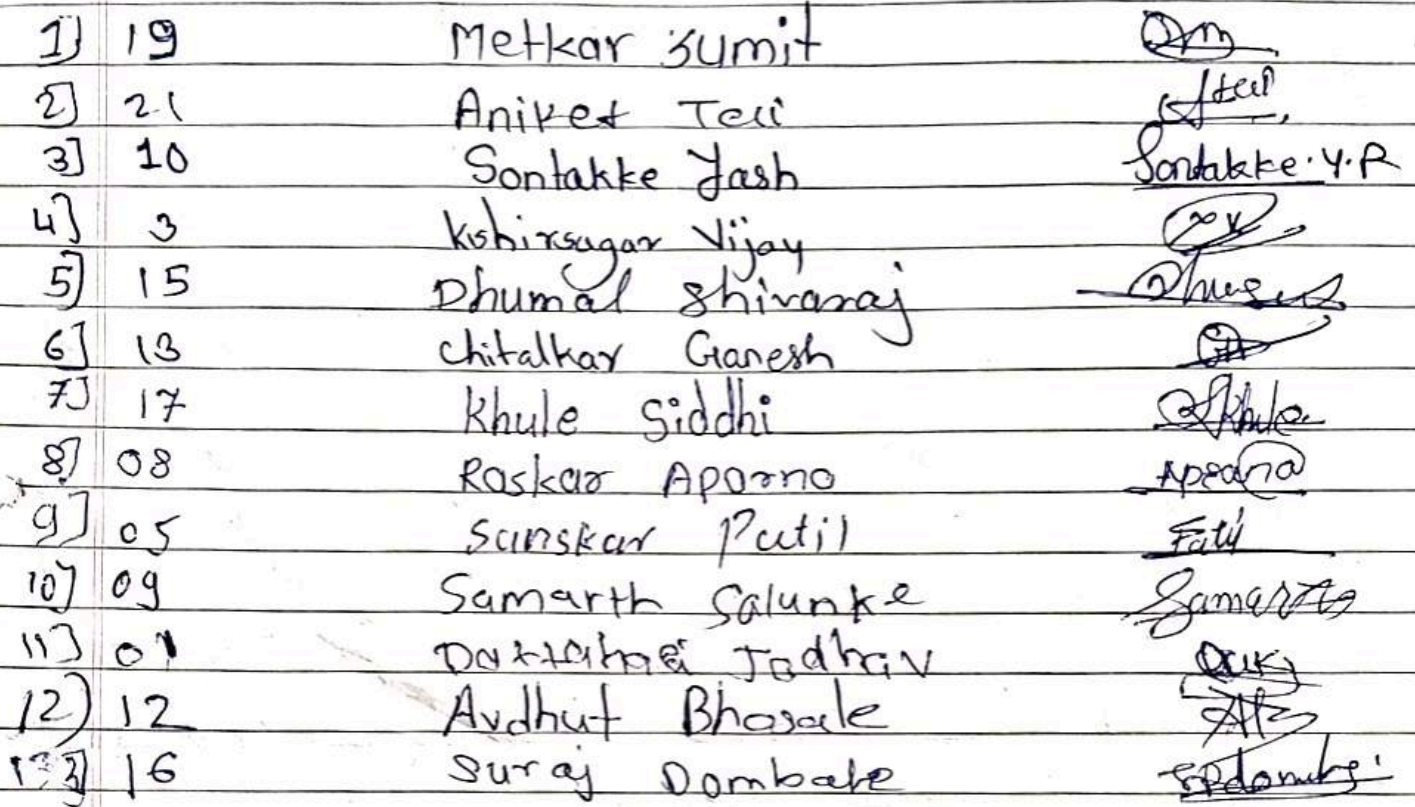 1] 19 Metkar Sumit
2] 21 Aniket Teli
3] 10 Sontakke Yash Sontakke.Y.R
4] 3 Kshirsagar Vijay
5] 15 Dhumal Shivaraj
6] 13 Chitalkar Ganesh
7] 17 Khule Siddhi Skhule
8] 08 Raskar Aparna Aparna
9] 05 Sanskar Patil Patil
10] 09 Samarth Salunke Samarth
11] 01 Jadhav
12) 12 Avdhut Bhosale
13] 16 Suraj Dombale